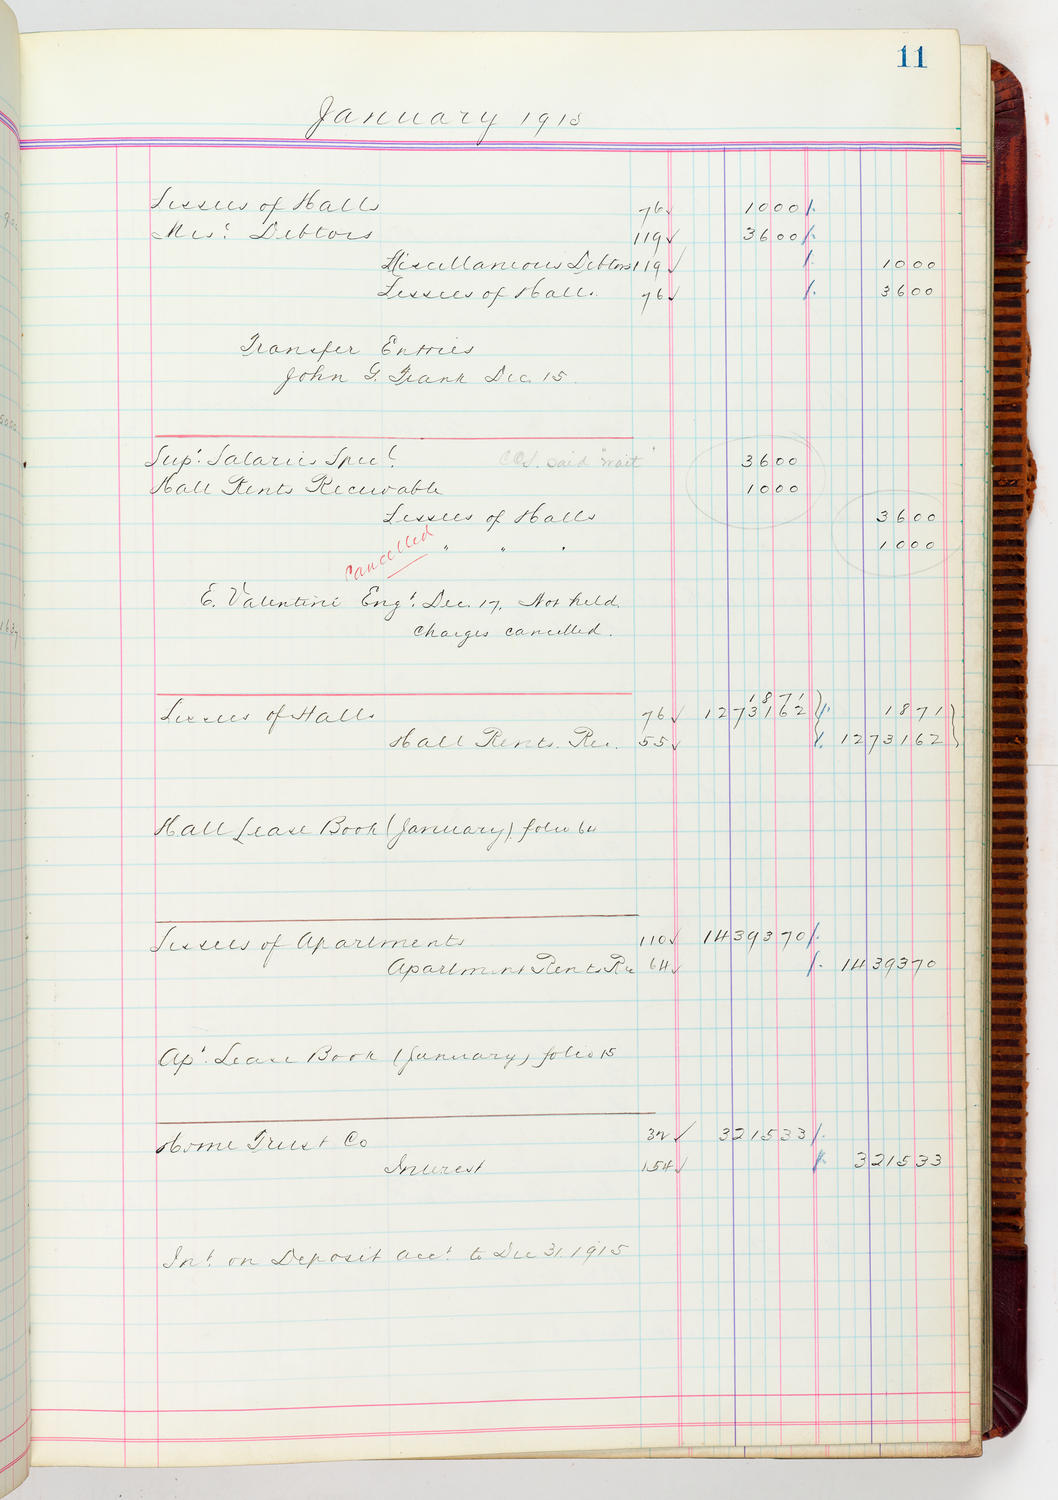 11
January 1915
Lessees of Halls 76 ✓ 1000
Mis.. Debtors 119 ✓ 3600
Miscellaneous Debtors 119 ✓ 1000
Lessees of Halls. 76 ✓ 3600
Transfer Entries
John G. Frank Dec. 15.
Sup't. Salaries Spec'l. said "wait" 3600
Hall Rents Receivable 1000
Lessees of Halls 3600
Cancelled " " " 1000
E. Valentine Eng'. Dec. 17. Not held.
Charges cancelled.
1871
Lessees of Halls 76 ✓ 1273162 1871
Hall Rents. Rec. 55 ✓ 1273162
Hall Lease Book (January) folio 64
Lessees of Apartments 110 ✓ 1439370
Apartment Rents Re 64 ✓ 1439370
Ap't. Lease Book (January) folio 15
Home Trust Co 32 ✓ 321533
Interest 154 ✓ 321533
In't. on Deposit acc't. to Dec 31, 1915